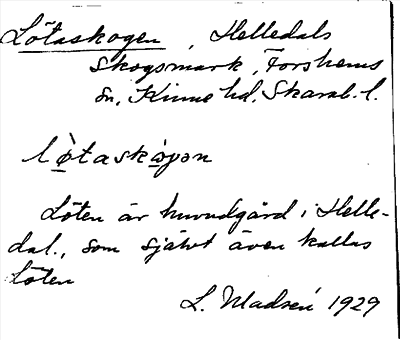 Lötaskogen, Helledals
Skogsmark, Forshems
sn, Kinne hd, Skarab. l.
lø̀taskøγən
Löten är huvudgård i Helle-
dal., som självt även kallas
Löten
L. Madsén 1929